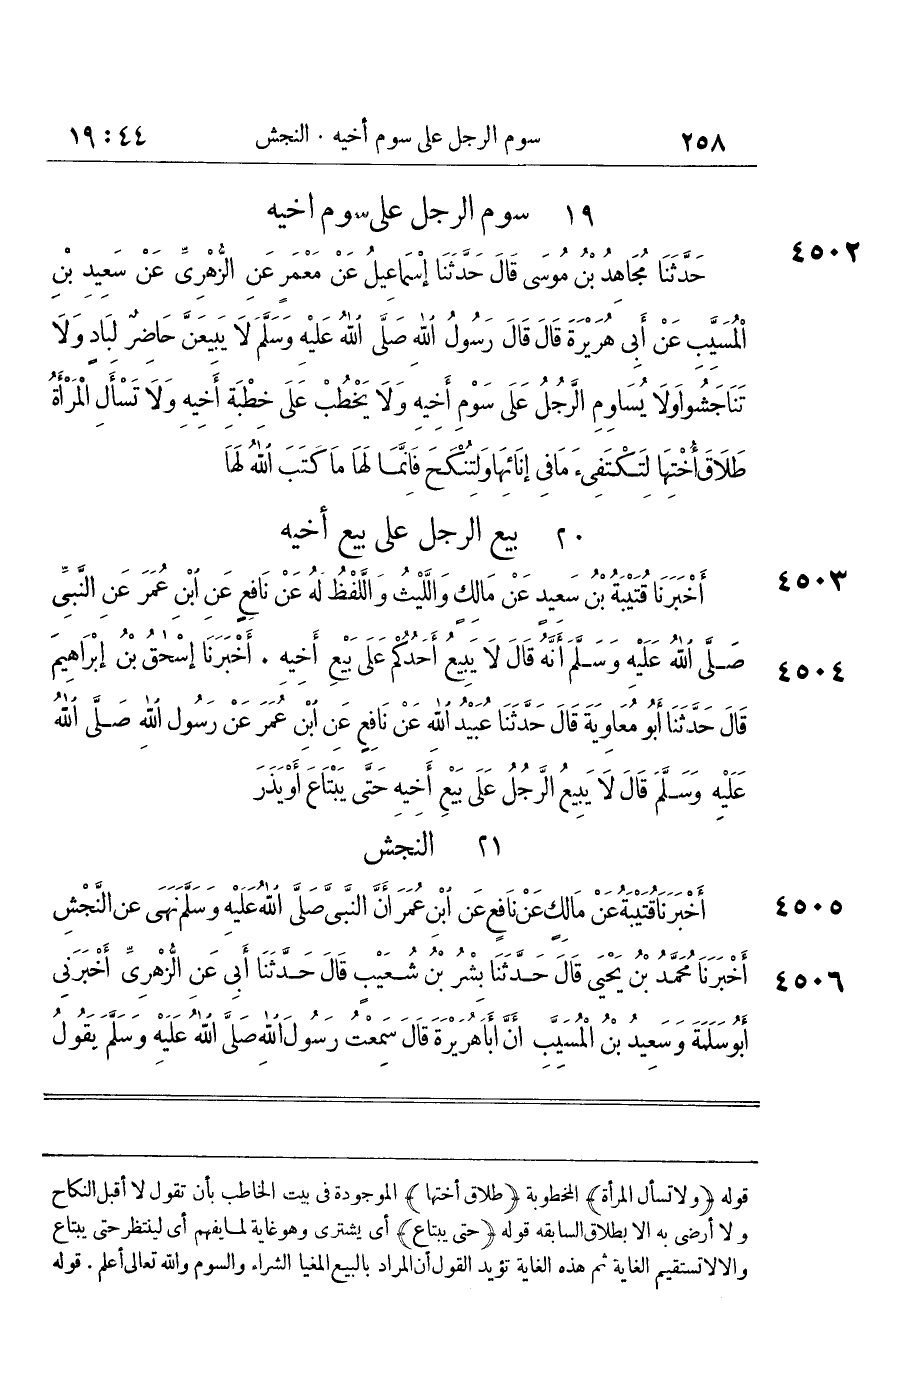 ٢٥٨ سوم الرجل على سوم أخيه · النجش ١٩:٤٤
١٩ سوم الرجل على سوم اخيه
٤٥٠٢ حَدَّثَنَا مُجَاهِدُ بْنُ مُوسَى قَالَ حَدَّثَنَا إِسْمَاعِيلُ عَنْ مَعْمَرٍ عَنِ الزُّهْرِيِّ عَنْ سَعِيدِ بْنِ
الْمُسَيَّبِ عَنْ أَبِى هُرَيْرَةَ قَالَ قَالَ رَسُولُ اللهِ صَلَّى اللهُ عَلَيْهِ وَسَلَّمَ لَا يَبِيعَنَّ حَاضِرٌ لِبَادٍ وَلَا
تَنَاجَشُوا وَلَا يُسَاوِمِ الرَّجُلُ عَلَى سَوْمِ أَخِيهِ وَلَا يَخْطُبْ عَلَى خِطْبَةِ أَخِيهِ وَلَا تَسْأَلِ الْمَرْأَةُ
طَلَاقَ أُخْتِهَا لِتَكْتَفِىءَ مَا فِى إِنَائِهَا وَلِتُنْكَحَ فَإِنَّمَا لَهَا مَا كَتَبَ اللهُ لَهَا
٢٠ بيع الرجل على بيع أخيه
٤٥٠٣ أَخْبَرَنَا قُتَيْبَةُ بْنُ سَعِيدٍ عَنْ مَالِكٍ وَاللَّيْثُ وَاللَّفْظُ لَهُ عَنْ نَافِعٍ عَنِ ابْنِ عُمَرَ عَنِ النَّبِىِّ
٤٥٠٤ صَلَّى اللهُ عَلَيْهِ وَسَلَّمَ أَنَّهُ قَالَ لَا يَبِيعُ أَحَدُكُمْ عَلَى بَيْعِ أَخِيهِ . أَخْبَرَنَا إِسْحَقُ بْنُ إِبْرَاهِيمَ
قَالَ حَدَّثَنَا أَبُو مُعَاوِيَةَ قَالَ حَدَّثَنَا عُبَيْدُ اللهِ عَنْ نَافِعٍ عَنِ ابْنِ عُمَرَ عَنْ رَسُولِ اللهِ صَلَّى اللهُ
عَلَيْهِ وَسَلَّمَ قَالَ لَا يَبِيعُ الرَّجُلُ عَلَى بَيْعِ أَخِيهِ حَتَّى يَبْتَاعَ أَوْ يَذَرَ
٢١ النجش
٤٥٠٥ أَخْبَرَنَا قُتَيْبَةُ عَنْ مَالِكٍ عَنْ نَافِعٍ عَنِ ابْنِ عُمَرَ أَنَّ النَّبِىَّ صَلَّى اللهُ عَلَيْهِ وَسَلَّمَ نَهَى عَنِ النَّجْشِ
٤٥٠٦ أَخْبَرَنَا مُحَمَّدُ بْنُ يَحْيَى قَالَ حَدَّثَنَا بِشْرُ بْنُ شُعَيْبٍ قَالَ حَدَّثَنَا أَبِى عَنِ الزُّهْرِىِّ أَخْبَرَنِى
أَبُو سَلَمَةَ وَسَعِيدُ بْنُ الْمُسَيَّبِ أَنَّ أَبَا هُرَيْرَةَ قَالَ سَمِعْتُ رَسُولَ اللهِ صَلَّى اللهُ عَلَيْهِ وَسَلَّمَ يَقُولُ
قوله ﴿ولا تسأل المرأة﴾ المخطوبة ﴿طلاق أختها﴾ الموجودة فى بيت الخاطب بأن تقول لا أقبل النكاح
ولا أرضى به الا بطلاق السابقه قوله ﴿حتى يبتاع﴾ أى يشترى وهو غاية لما يفهم أى لينتظر حتى يبتاع
والا لا تستقيم الغاية ثم هذه الغاية تؤيد القول أن المراد بالبيع المغيا الشراء والسوم والله تعالى أعلم . قوله